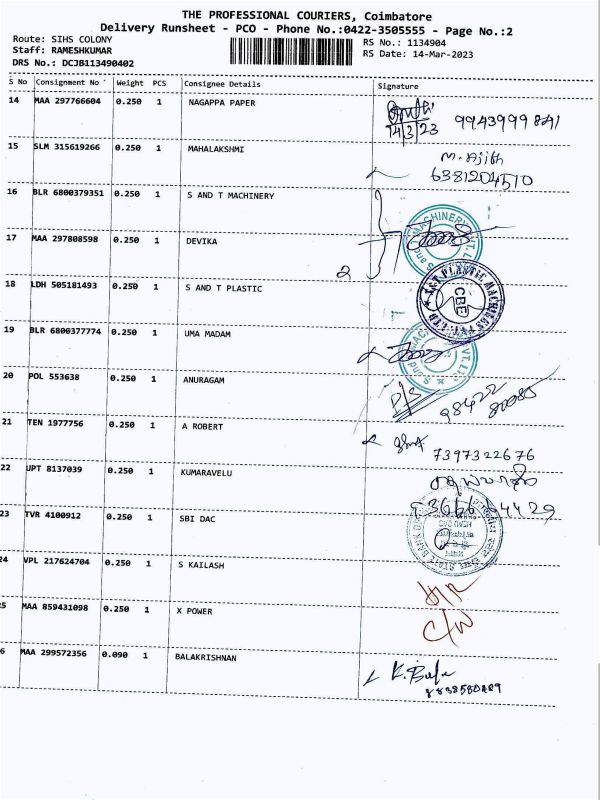 THE PROFESSIONAL COURIERS, Coimbatore
Delivery Runsheet - PCO - Phone No.:0422-3505555 - Page No.:2
Route: SIHS COLONY
RS No.: 1134904
Staff: RAMESHKUMAR
RS Date: 14-Mar-2023
DRS No.: DCJB113490402
S No Consignment No Weight PCS Consignee Details Signature
14 MAA 297766604 0.250 1 NAGAPPA PAPER
14/3/23 9943999841
15 SLM 315619266 0.250 1 MAHALAKSHMI M. Ajith
6381204510
16 BLR 6800379351 0.250 1 S AND T MACHINERY
17 MAA 297808598 0.250 1 DEVIKA
2
18 LDH 505181493 0.250 1 S AND T PLASTIC CBE
19 BLR 6800377774 0.250 1 UMA MADAM
20 POL 553638 0.250 1 ANURAGAM P/S 98422
21 TEN 1977756 0.250 1 A ROBERT
7397322676
22 UPT 8137039 0.250 1 KUMARAVELU
23 TVR 4100912 0.250 1 SBI DAC STATE BANK
24 VPL 217624704 0.250 1 S KAILASH
25 MAA 859431098 0.250 1 X POWER C/W
6 MAA 299572356 0.090 1 BALAKRISHNAN